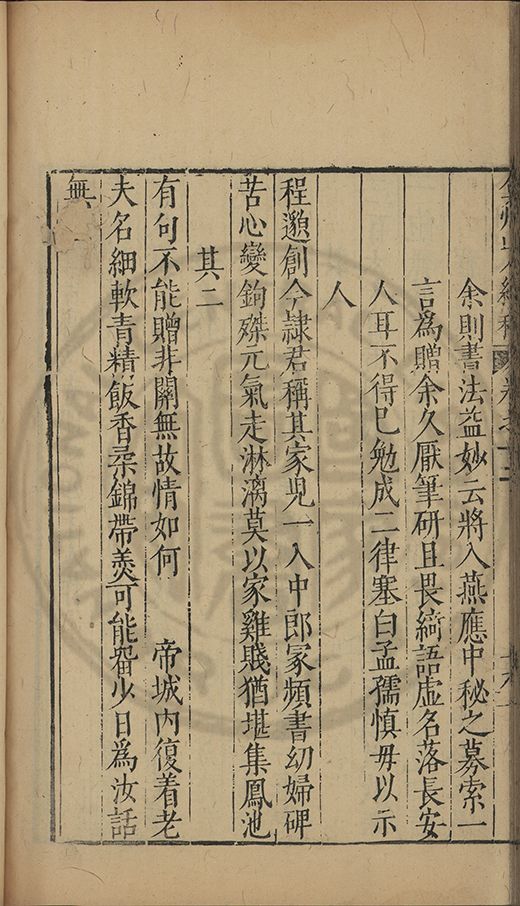 余則書法益妙云將入燕應中秘之募索一
言為贈余久厭筆研且畏綺語虛名落長安
人耳不得已勉成二律塞白孟孺慎毋以示
人
程邈創今隷君稱其家兒一入中郎冢頻書幼婦碑
苦心變鉤殊元氣走淋漓莫以家雞賤猶堪集鳳池
其二
有句不能贈非關無故情如何 帝城內復着老
夫名細軟青精飯香柔錦帶羮可能畱少日為汝話
無